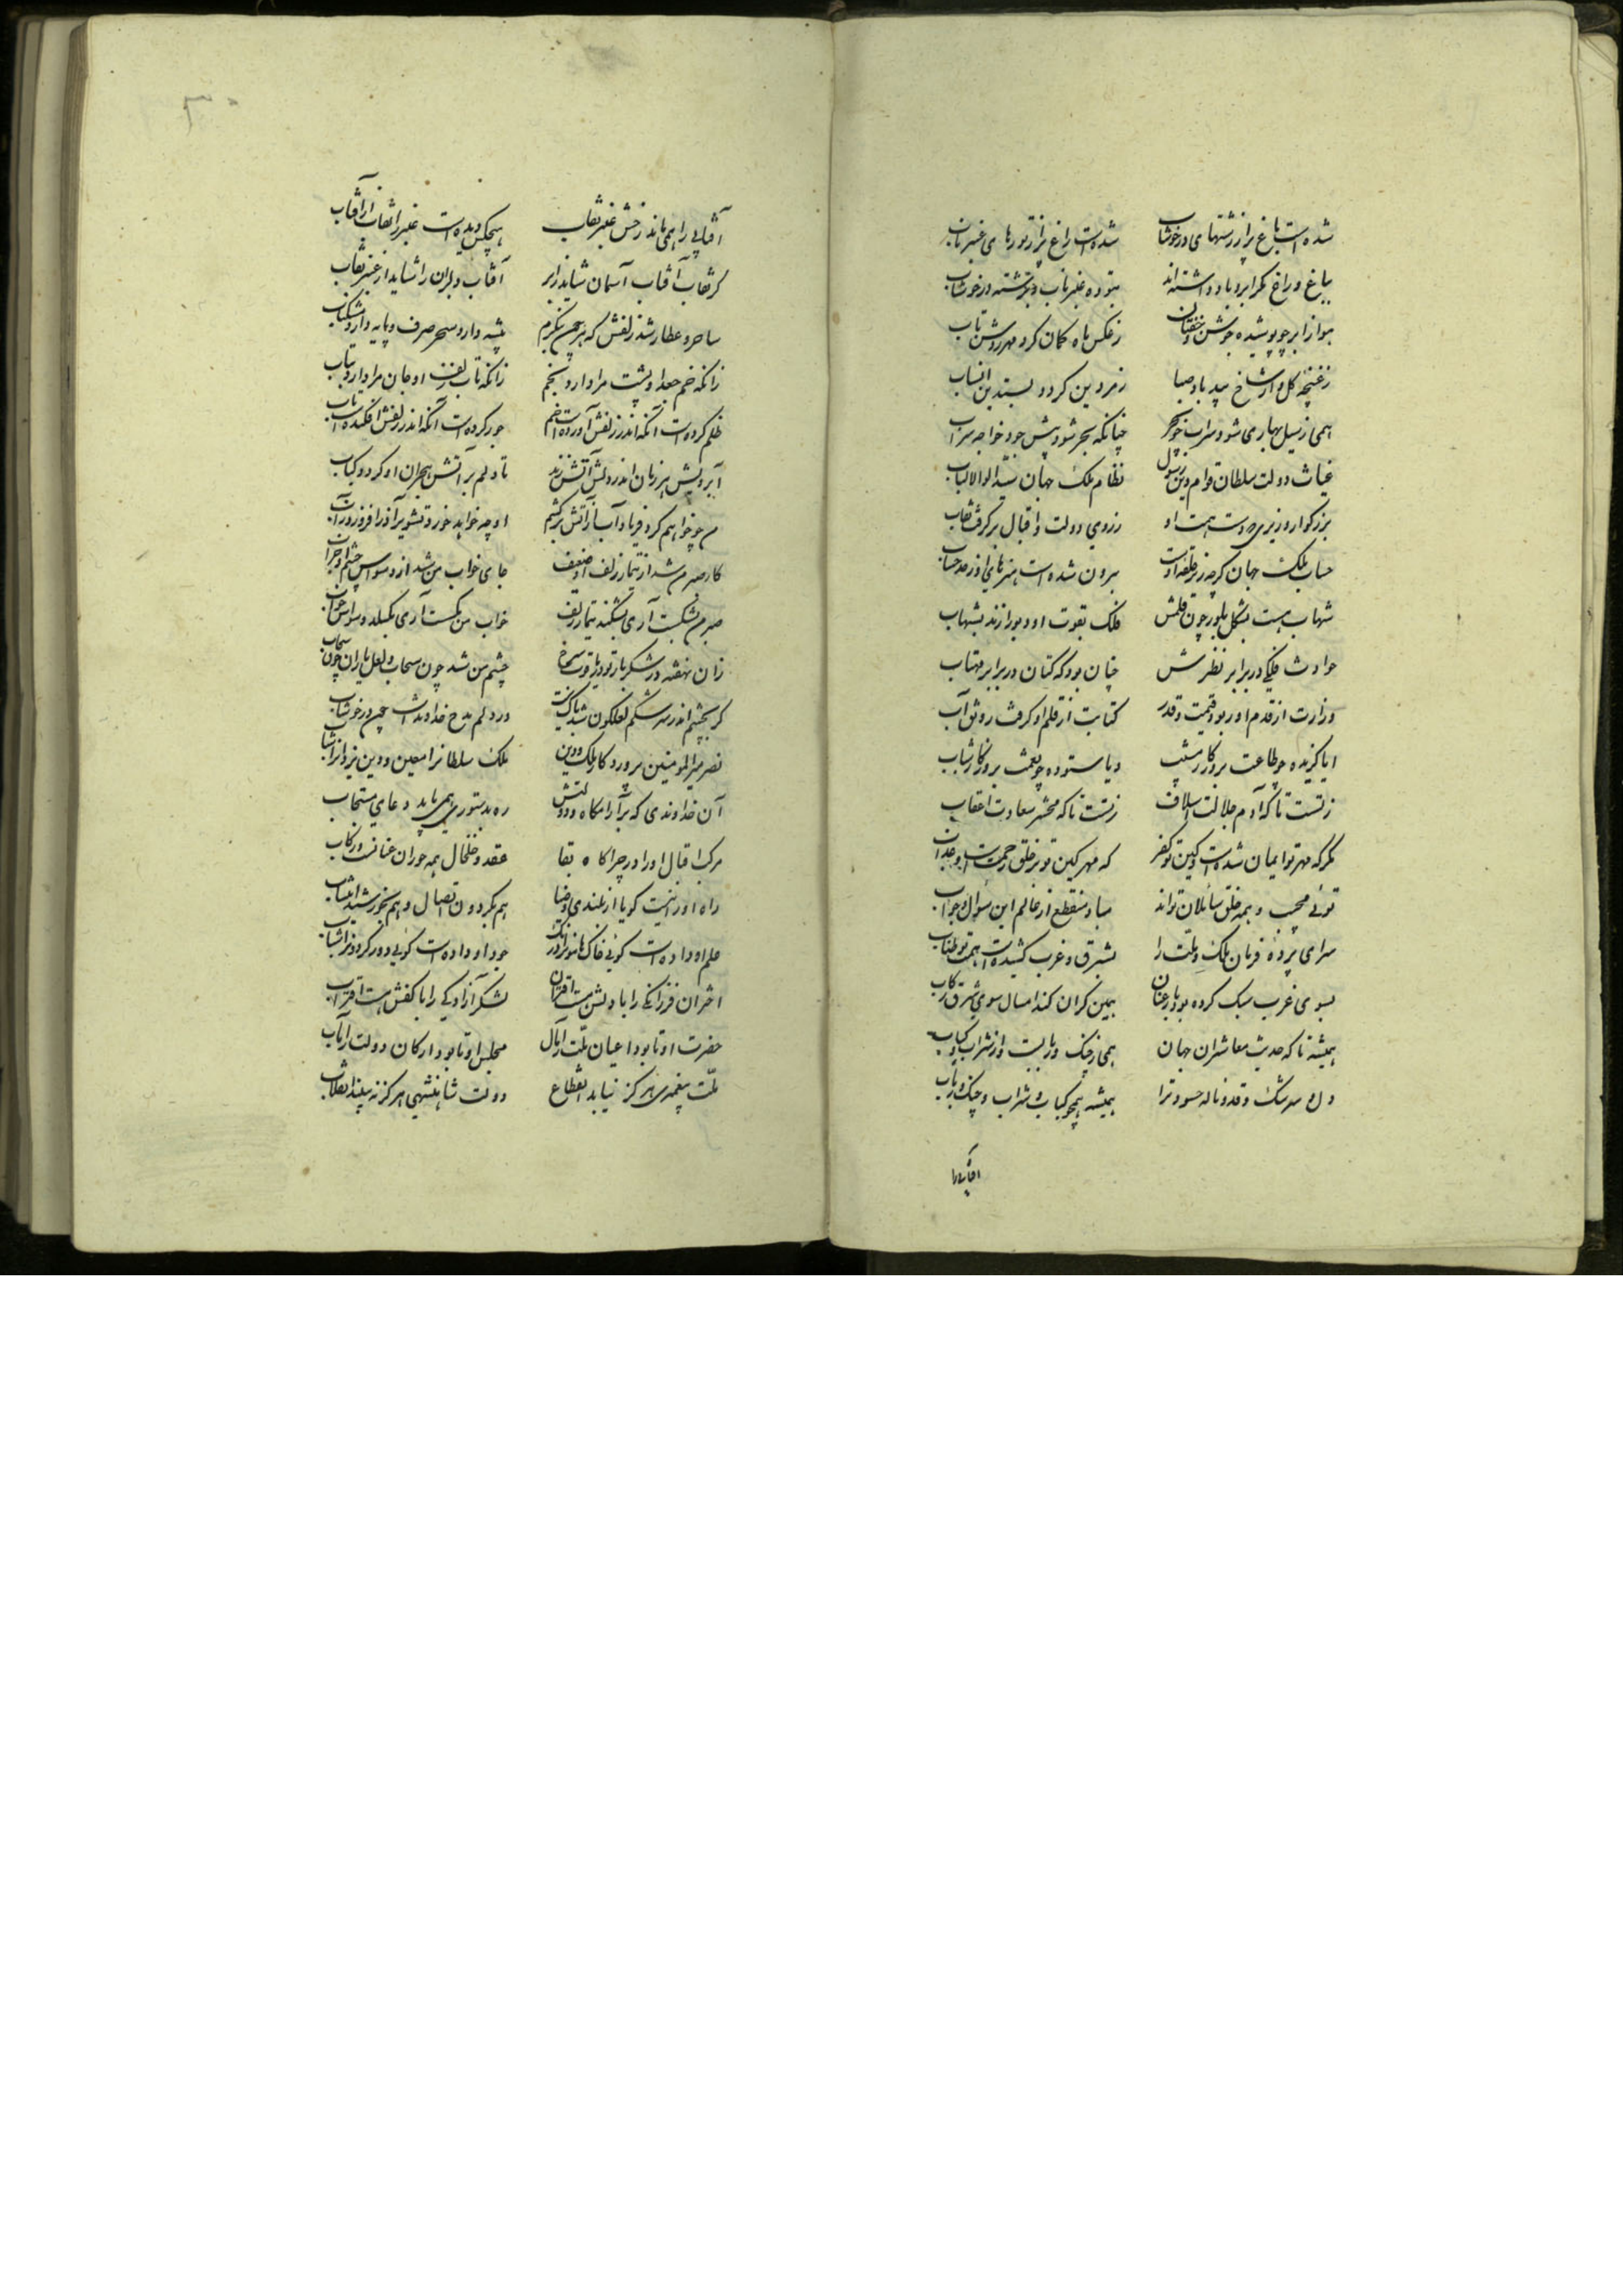 شده است باغ پر از رشتهای در خوشاب شده است راغ پر از تودهای عنبر ناب
بباغ و راغ مگر ابر و باد داشته‌اند بتوده عنبر ناب و برشته در خوشاب
هوا ز ابر چو پوشیده جوشن و خفتان ز عکس ماه کمان کرد مهر روشن تاب
ز غنچه کل و از شاخ بید باد صبا زمردین کرد و بسدین
همی ز سیل بهاری شود سراب چو بحر چنانکه بحر شود پیش جود خواجه سراب
غیاث دولت سلطان قوام دین رسول نظام ملک جهان سید اولوالالباب
بزرکوار وزیری که دست همت او ز روی دولت و اقبال بر کرفت نقاب
حساب ملک جهان کرچه زیر حلقه اوست برون شده است هنرهای او ز حد حساب
شهاب هست بشکل بلور چون قلمش فلک بقوت او دیو را زند بشهاب
حوادث فلکی در برابر نظرش چنان بود که کتان در برابر مهتاب
وزارت از قدم او ربود قیمت و قدر کتابت از قلم او کرفت رونق و آب
ایا کزیده چو طاعت بروزکار مشیب و یا ستوده چو نعمت بروزکار شباب
ز تست تا که آدم جلالت اسلاف ز تست تا که محشر سعادت اعقاب
مکر که مهر تو ایمان شده است و کین تو کفر که مهر و کین تو بر خلق رحمت است و عذاب
توئی مجیب و همه خلق سائلان تواند مباد منقطع از عالم این سؤال و جواب
سرای پرده فرمان ملک و ملت را بشرق و غرب کشیده است همت تو طناب
بسوی غرب سبک کرده بود پار عنان همین کران کند امسال سوی شرق رکاب
همیشه تا که حدیث معاشران جهان همی ز چنک و رباب است و از شراب و کباب
دل و سرشک و قد و ناله حسود ترا همیشه همچو کباب و شراب و چنک و رباب
آفتابی را همی ماند رخش عنبر نقاب هیچکس دیده است عنبر را نقاب از آفتاب
کر نقاب آفتاب آسمان شاید ز ابر آفتاب دلبران را شاید از عنبر نقاب
ساحر و عطار شد زلفش که هر چون بنکرم پیشه دارد سحر صرف و پایه دارد مشک ناب
زانکه خم جعد او پشت مرا دارد بخم زانکه تاب زلف او جان مرا دارد بتاب
ظلم کرده است آنکه اندر زلفش آورده است خم جور کرده است آنکه اندر زلفش افکنده است تاب
آبرویش هر زمان اندر دلش آتش زند تا دلم بر آتش هجران او کردد کباب
من چو خواهم کرد فریاد آب ز آتش برکشم او چه خواهد خورد تشویر آذر افروزد ز آب
کار صبر من شد از تیمار زلف او ضعیف جای خواب من شد از وسواس چشم او خراب
صبر من بشکست آری بشکند تیمار زلف خواب من بکسست آری بکسلد وسواس خواب
زان نهفته در شکر بار تو دو یاقوت سرخ چشم من شد چون سحاب و لعل باران چون سحاب
کر بچشم اندر سرشکم لعلکون شد باک نیست در دلم مدح خداوند است چون در خوشاب
نصر میر المومنین پرورد کار ملک و دین ملک سلطانرا معین و دین یزدانرا شهاب
آن خداوندی که بر آرامکاه دولتش ره بدستوری همی یابد دعای مستجاب
مرکب اقبال او را در چراکاه بقا عقد و خلخال همه حوران عنانست و رکاب
راه او را نیست کویا از بلندی و ضیا هم بکردون اتصال و هم بخورشید انتساب
حلم او داده است کوئی خاک هامونرا درنک جود او داده است کوئی دور کردونرا شتاب
اختران فرزانکی را با دلش هست اقتران لشکر آزادکی را با کفش هست اقتراب
حضرت او تا بود اعیان ملت را مآل مجلس او تا بود ارکان دولت را مآب
ملت پیغمبری هرکز نیابد انقطاع دولت شاهنشهی هرکز نه بیند انقلاب